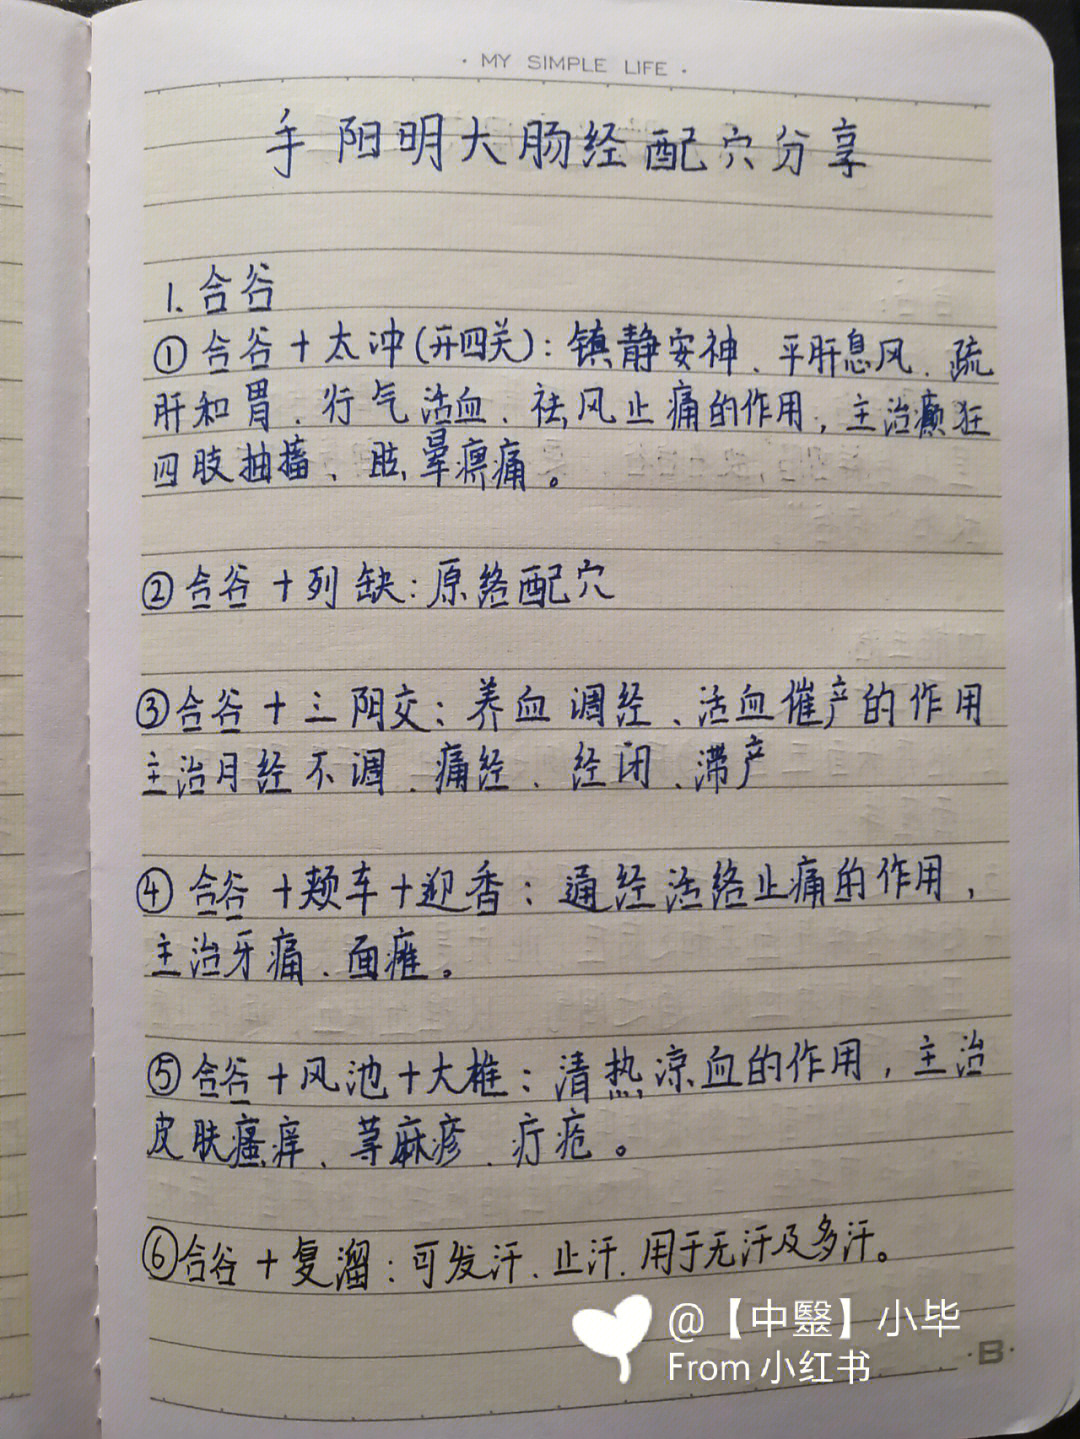 · MY SIMPLE LIFE ·
手阳明大肠经配穴分享
1. 合谷
①合谷+太冲(开四关): 镇静安神、平肝息风、疏
肝和胃、行气活血、祛风止痛的作用, 主治癫狂
四肢抽搐、眩晕痹痛。
②合谷+列缺: 原络配穴
③合谷+三阳交: 养血调经、活血催产的作用
主治月经不调、痛经、经闭、滞产
④合谷+颊车+迎香: 通经活络止痛的作用,
主治牙痛、面瘫。
⑤合谷+风池+大椎: 清热凉血的作用, 主治
皮肤瘙痒、荨麻疹、疔疮。
⑥合谷+复溜: 可发汗、止汗、用于无汗及多汗。
@【中醫】小毕
From 小红书
·B·